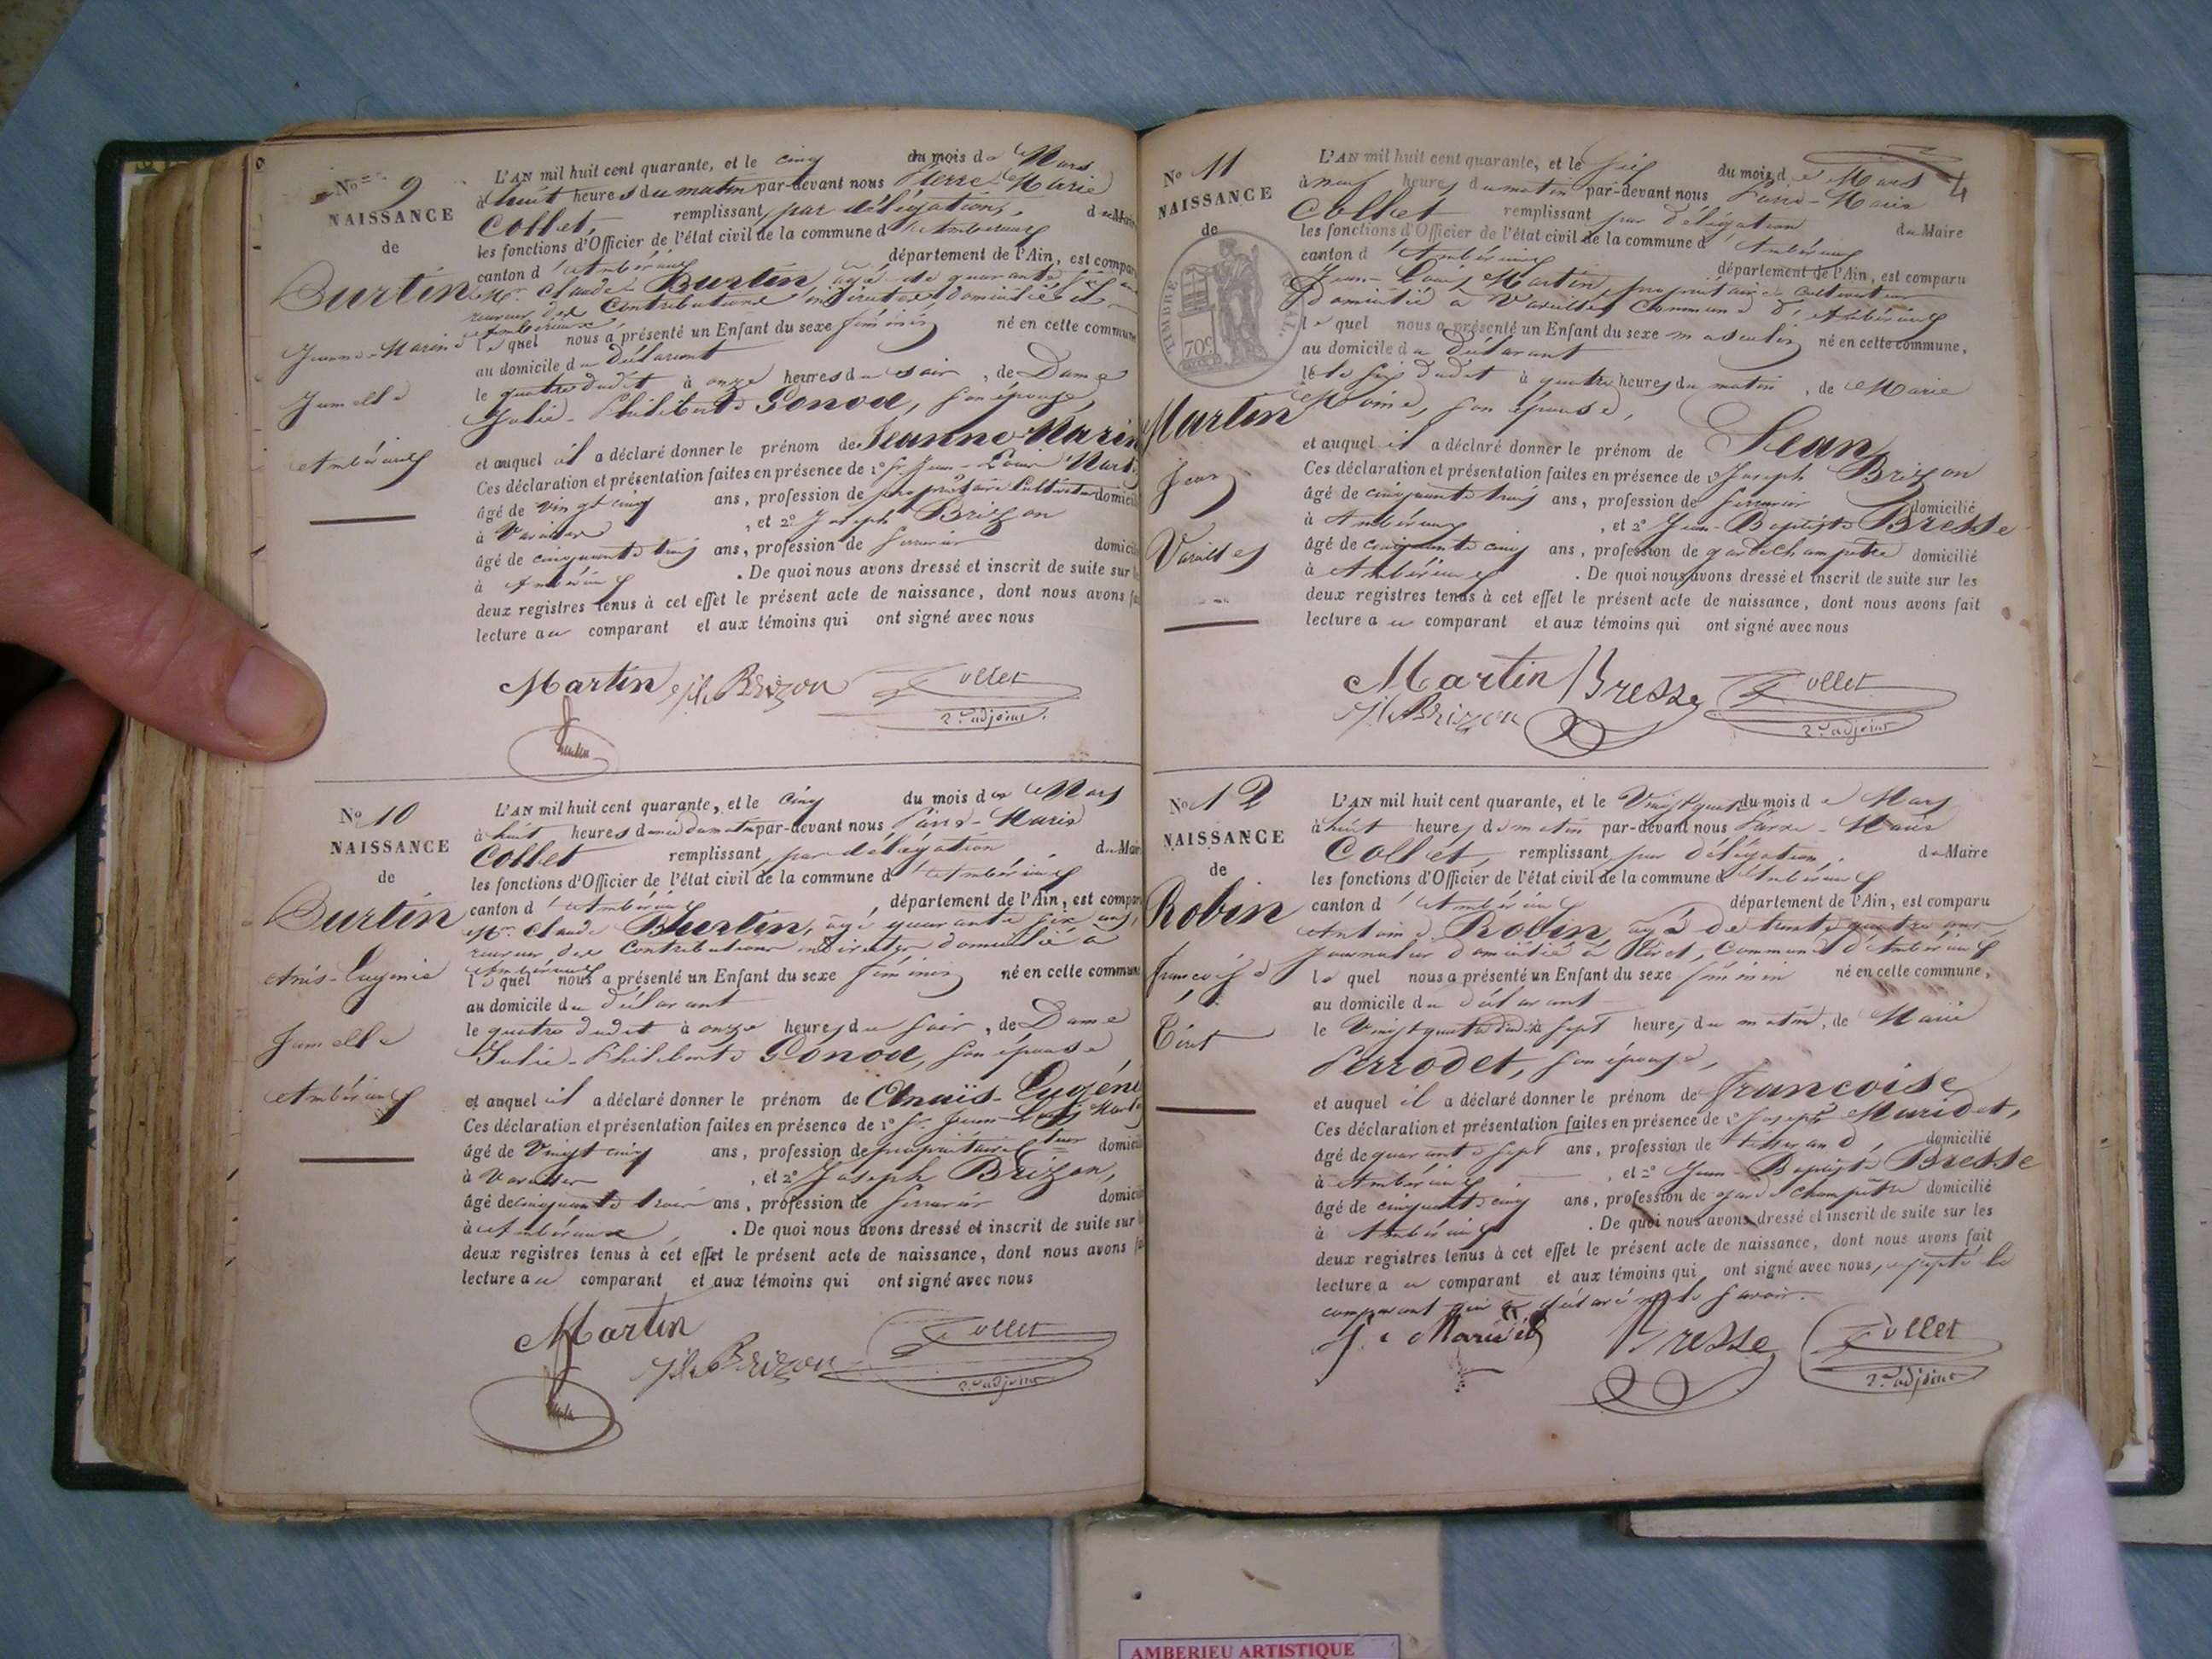 No 9
NAISSANCE
de
Burtin
Jeanne-Marie
Jumelle
Ambérieux
L'AN mil huit cent quarante, et le cinq du mois de Mars
à huit heures du matin par-devant nous Pierre-Marie
Collet, remplissant par délégation, du Maire
les fonctions d'Officier de l'état civil de la commune d'Ambérieux
canton d'Ambérieux département de l'Ain, est compar
Mr. Claude Burtin, agé de quarante six ans
receveur des Contributions indirectes, domicilié à
Ambérieux
lequel nous a présenté un Enfant du sexe féminin né en cette commune
au domicile du Déclarant
le quatre dudit à onze heures du soir, de Dame
Julie-Philiberte Gonod, son épouse,
et auquel il a déclaré donner le prénom de Jeanne-Marie
Ces déclaration et présentation faites en présence de 1º Sr. Jean-Louis Marti
âgé de vingt cinq ans, profession de propriétaire Cultivateur domicil
à Vareilles, et 2º Joseph Brizon
âgé de cinquante trois ans, profession de serrurier domicil
à Ambérieux. De quoi nous avons dressé et inscrit de suite sur l
deux registres tenus à cet effet le présent acte de naissance, dont nous avons fa
lecture au comparant et aux témoins qui ont signé avec nous
Martin Jh Brizon Collet
2e adjoint
No 10
NAISSANCE
de
Burtin
Anaïs-Eugénie
Jumelle
Ambérieux
L'AN mil huit cent quarante, et le cinq du mois de Mars
à huit heures du matin par-devant nous Pierre-Marie
Collet remplissant par délégation du Mair
les fonctions d'Officier de l'état civil de la commune d'Ambérieux
canton d'Ambérieux, département de l'Ain, est compar
Mr. Claude Burtin, agé quarante six ans,
receveur des Contributions indirectes domicilié à
Ambérieux
lequel nous a présenté un Enfant du sexe féminin né en cette commune
au domicile du déclarant
le quatre dudit à onze heures du soir, de Dame
Julie-Philiberte Gonod, son épouse
et auquel il a déclaré donner le prénom de Anaïs-Eugéni
Ces déclaration et présentation faites en présence de 1º Sr. Jean-Louis Marti
âgé de Vingt cinq ans, profession de propriétaire domicil
à Vareilles, et 2º Joseph Brizon,
âgé de cinquante trois ans, profession de serrurier domicil
à Ambérieux. De quoi nous avons dressé et inscrit de suite sur l
deux registres tenus à cet effet le présent acte de naissance, dont nous avons fa
lecture au comparant et aux témoins qui ont signé avec nous
Martin
Jh Brizon Collet
2e adjoint
4
No 11
NAISSANCE
de
TIMBRE ROYAL.
70c
Martin
Jean
Vareilles
L'AN mil huit cent quarante, et le six du mois de Mars
à neuf heures du matin par-devant nous Pierre-Marie
Collet remplissant par délégation du Maire
les fonctions d'Officier de l'état civil de la commune d'Ambérieux
canton d'Ambérieux département de l'Ain, est comparu
Jean-Louis Martin, propriétaire Cultivateur
domicilié à Vareilles Commune d'Ambérieux
lequel nous a présenté un Enfant du sexe masculin né en cette commune,
au domicile du Déclarant
le six dudit à quatre heures du matin, de Marie
Moine, son épouse,
et auquel il a déclaré donner le prénom de Jean
Ces déclaration et présentation faites en présence de 1º Joseph Brizon
âgé de cinquante trois ans, profession de serrurier domicilié
à Ambérieux, et 2º Jean-Baptiste Bresse
âgé de cinquante cinq ans, profession de garde champêtre domicilié
à Ambérieux. De quoi nous avons dressé et inscrit de suite sur les
deux registres tenus à cet effet le présent acte de naissance, dont nous avons fait
lecture au comparant et aux témoins qui ont signé avec nous
Martin Bresse Collet
Jh Brizon 2e adjoint
No 12
NAISSANCE
de
Robin
Françoise
Tiret
L'AN mil huit cent quarante, et le Vingt quatre du mois de Mars
à huit heures du matin par-devant nous Pierre-Marie
Collet, remplissant par délégation, du Maire
les fonctions d'Officier de l'état civil de la commune d'Ambérieux
canton d'Ambérieux département de l'Ain, est comparu
Antoine Robin, agé de trente quatre ans
journalier domicilié à Tiret, Commune d'Ambérieux
lequel nous a présenté un Enfant du sexe féminin né en cette commune,
au domicile du déclarant
le Vingt quatre dudit à sept heures du matin, de Marie
Perrodet, son épouse,
et auquel il a déclaré donner le prénom de françoise
Ces déclaration et présentation faites en présence de 1º Joseph Maridet,
âgé de quarante sept ans, profession de tisserand, domicilié
à Ambérieux, et 2º Jean-Baptiste Bresse
âgé de cinquante cinq ans, profession de garde champêtre domicilié
à Ambérieux. De quoi nous avons dressé et inscrit de suite sur les
deux registres tenus à cet effet le présent acte de naissance, dont nous avons fait
lecture au comparant et aux témoins qui ont signé avec nous, excepté le
comparant qui a déclaré ne le savoir.
J. Maridet Bresse Collet
2e adjoint
AMBERIEU ARTISTIQUE